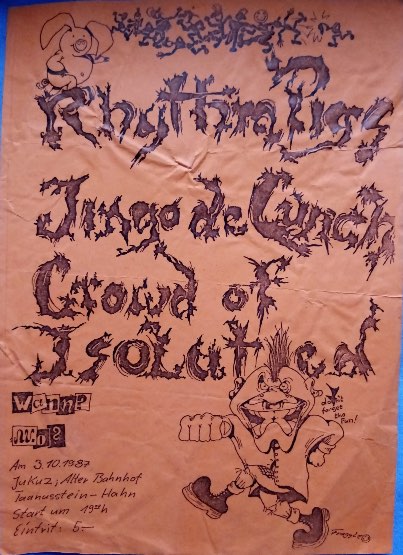 Rhythm Pigs
Jingo de Lunch
Crowd of
Isolated
wann?
wo?
Don't
forget
the
Fun!
Am 3.10.1987
JuKuz, Alter Bahnhof
Taunusstein-Hahn
Start um 19⁰⁰h
Eintrit: 6.-